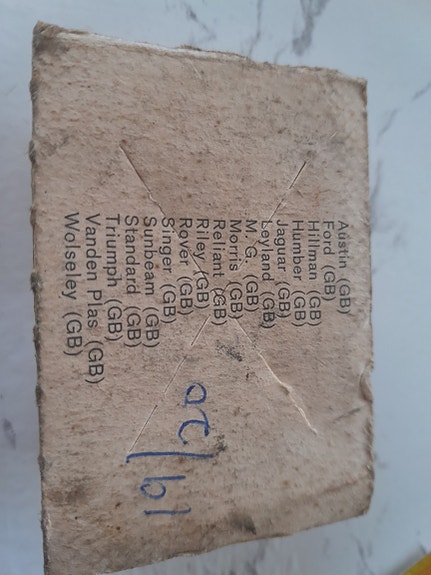 Austin (GB)
Ford (GB)
Hillman (GB)
Humber (GB)
Jaguar (GB)
Leyland (GB)
M. G. (GB)
Morris (GB)
Reliant (GB)
Riley (GB)
Rover (GB)
Singer (GB)
Sunbeam (GB)
Standard (GB)
Triumph (GB)
Vanden Plas (GB)
Wolseley (GB)